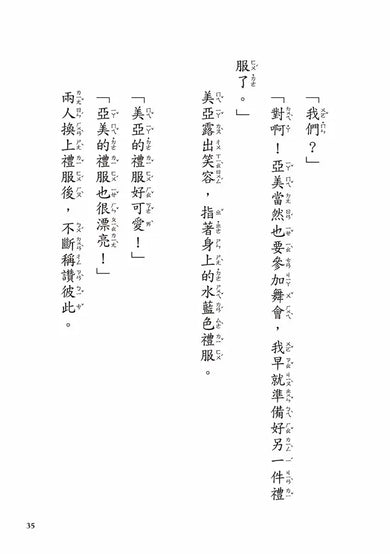 「我們？」
「對啊！亞美當然也要參加舞會，我早就準備好另一件禮
服了。」
美亞露出笑容，指著身上的水藍色禮服。
「美亞的禮服好可愛！」
「亞美的禮服也很漂亮！」
兩人換上禮服後，不斷稱讚彼此。
35